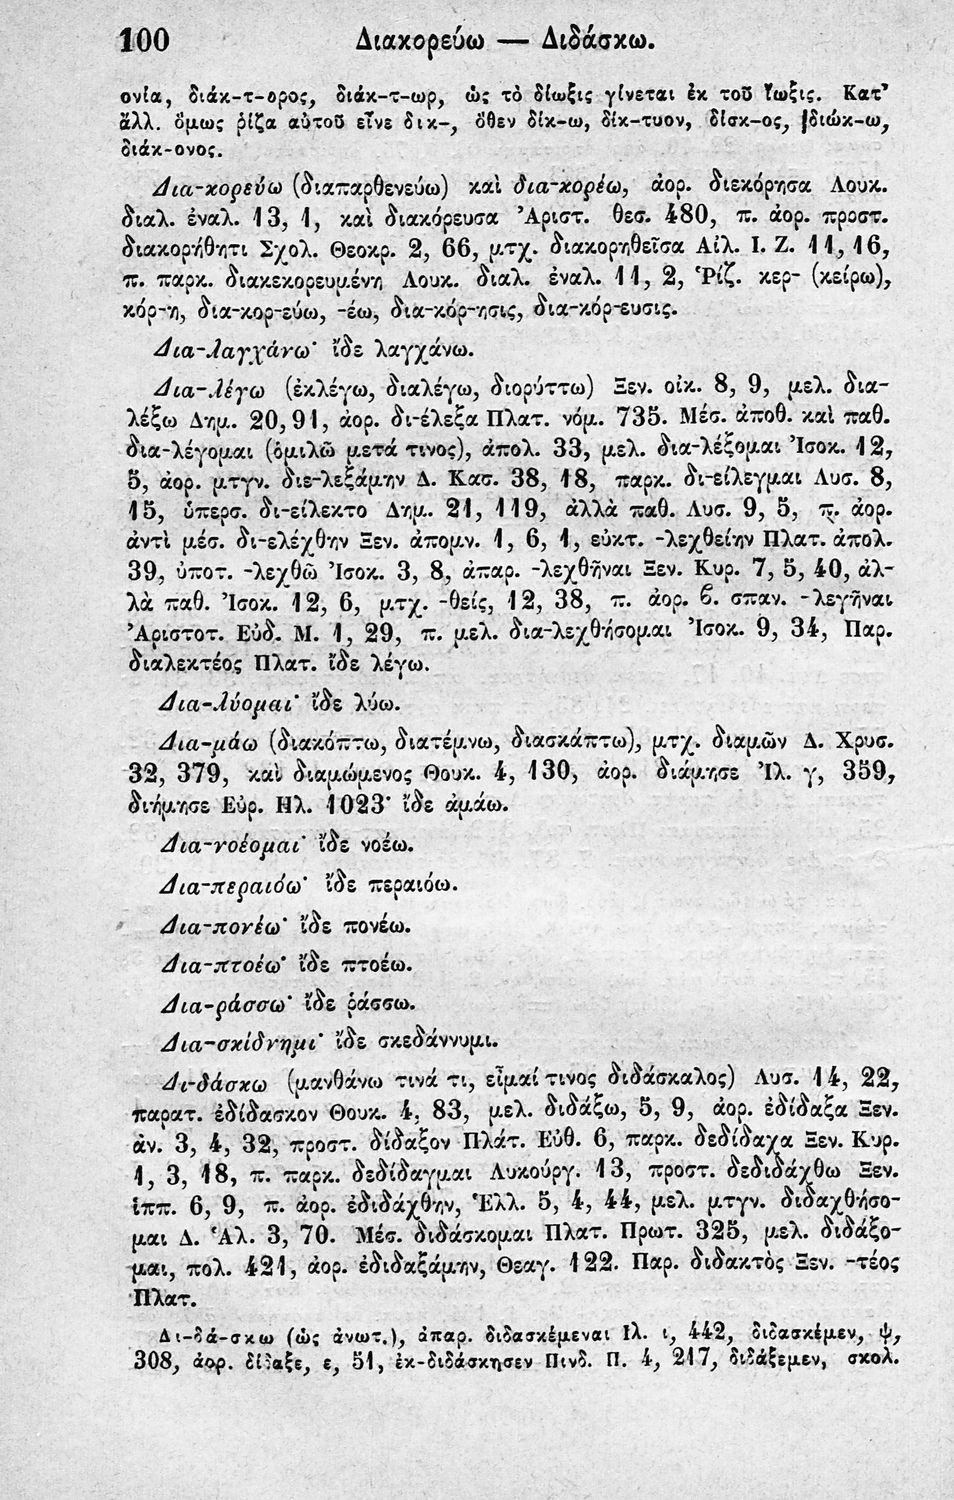 100 Διακορεύω — Διδάσκω.
ονία, διάκ-τ-ορος, διάκ-τ-ωρ, ὡς τὸ δίωξις γίνεται ἐκ τοῦ ἴωξις. Κατ'
ἄλλ. ὅμως ῥίζα αὐτοῦ εἶνε δικ-, ὅθεν δίκ-ω, δίκ-τυον, δίσκ-ος, διώκ-ω,
διάκ-ονος.
Δια-κορεύω (διαπαρθενεύω) καὶ δια-κορέω, ἀορ. διεκόρησα Λουκ.
διαλ. ἐναλ. 13, 1, καὶ διακόρευσα Ἀριστ. θεσ. 480, π. ἀορ. προστ.
διακορήθητι Σχολ. Θεοκρ. 2, 66, μτχ. διακορηθεῖσα Αἰλ. Ι. Ζ. 11, 16,
π. παρκ. διακεκορευμένη Λουκ. διαλ. ἐναλ. 11, 2, Ῥίζ. κερ- (κείρω),
κόρ-η, δια-κορ-εύω, -έω, δια-κόρ-ησις, δια-κόρ-ευσις.
Δια-λαγχάνω· ἴδε λαγχάνω.
Δια-λέγω (ἐκλέγω, διαλέγω, διορύττω) Ξεν. οἰκ. 8, 9, μελ. δια-
λέξω Δημ. 20, 91, ἀορ. δι-έλεξα Πλατ. νόμ. 735. Μέσ. ἀποθ. καὶ παθ.
δια-λέγομαι (ὁμιλῶ μετά τινος), ἀπολ. 33, μελ. δια-λέξομαι Ἰσοκ. 12,
5, ἀορ. μτγν. διε-λεξάμην Δ. Κασ. 38, 18, παρκ. δι-είλεγμαι Λυσ. 8,
15, ὑπερσ. δι-είλεκτο Δημ. 21, 119, ἀλλὰ παθ. Λυσ. 9, 5, π. ἀορ.
ἀντὶ μέσ. δι-ελέχθην Ξεν. ἀπομν. 1, 6, 1, εὐκτ. -λεχθείην Πλατ. ἀπολ.
39, ὑποτ. -λεχθῶ Ἰσοκ. 3, 8, ἀπαρ. -λεχθῆναι Ξεν. Κυρ. 7, 5, 40, ἀλ-
λὰ παθ. Ἰσοκ. 12, 6, μτχ. -θείς, 12, 38, π. ἀορ. β. σπαν. -λεγῆναι
Ἀριστοτ. Εὐδ. Μ. 1, 29, π. μελ. δια-λεχθήσομαι Ἰσοκ. 9, 34, Παρ.
διαλεκτέος Πλατ. ἴδε λέγω.
Δια-λύομαι· ἴδε λύω.
Δια-μάω (διακόπτω, διατέμνω, διασκάπτω), μτχ. διαμῶν Δ. Χρυσ.
32, 379, καὶ διαμώμενος Θουκ. 4, 130, ἀορ. διάμησε Ἰλ. γ, 359,
διήμησε Εὐρ. Ηλ. 1023· ἴδε ἀμάω.
Δια-νοέομαι· ἴδε νοέω.
Δια-περαιόω· ἴδε περαιόω.
Δια-πονέω· ἴδε πονέω.
Δια-πτοέω· ἴδε πτοέω.
Δια-ράσσω· ἴδε ῥάσσω.
Δια-σκίδνημι· ἴδε σκεδάννυμι.
Δι-δάσκω (μανθάνω τινά τι, εἶμαί τινος διδάσκαλος) Λυσ. 14, 22,
παρατ. ἐδίδασκον Θουκ. 4, 83, μελ. διδάξω, 5, 9, ἀορ. ἐδίδαξα Ξεν.
ἀν. 3, 4, 32, προστ. δίδαξον Πλάτ. Εὐθ. 6, παρκ. δεδίδαχα Ξεν. Κυρ.
1, 3, 18, π. παρκ. δεδίδαγμαι Λυκούργ. 13, προστ. δεδιδάχθω Ξεν.
ἱππ. 6, 9, π. ἀορ. ἐδιδάχθην, Ἑλλ. 5, 4, 44, μελ. μτγν. διδαχθήσο-
μαι Δ. Ἁλ. 3, 70. Μέσ. διδάσκομαι Πλατ. Πρωτ. 325, μελ. διδάξο-
μαι, πολ. 421, ἀορ. ἐδιδαξάμην, Θεαγ. 122. Παρ. διδακτὸς Ξεν. -τέος
Πλατ.
Δι-δά-σκω (ὡς ἀνωτ.), ἀπαρ. διδασκέμεναι Ιλ. ι, 442, διδασκέμεν, ψ,
308, ἀορ. δίδαξε, ε, 51, ἐκ-διδάσκησεν Πινδ. Π. 4, 217, διδάξεμεν, σκολ.